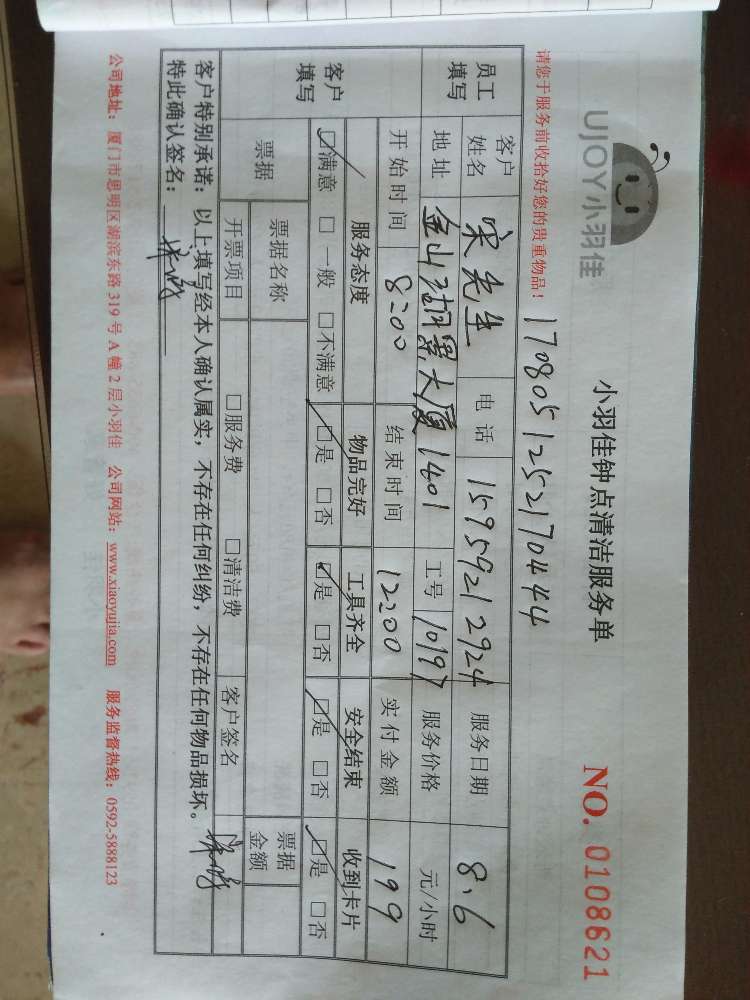 UJOY小羽佳
小羽佳钟点清洁服务单
NO. 0108621
请您于服务前收拾好您的贵重物品！ 1708051252170444
员工填写 客户姓名 宋先生 电话 15959212924 服务日期 8.6
地址 金山湖景大厦1401 工号 10197 服务价格 元/小时
开始时间 8:00 结束时间 12:00 实付金额 199
客户填写 服务态度 物品完好 工具齐全 安全结束 收到卡片
☑满意 □一般 □不满意 ☑是 □否 ☑是 □否 ☑是 □否 ☑是 □否
票据 票据名称 票据金额
开票项目 □服务费 □清洁费 客户签名
客户特别承诺：以上填写经本人确认属实，不存在任何纠纷，不存在任何物品损坏。
特此确认签名：
公司地址：厦门市思明区湖滨东路319号A幢2层小羽佳 公司网站：www.xiaoyujia.com 服务监督热线：0592-5888123